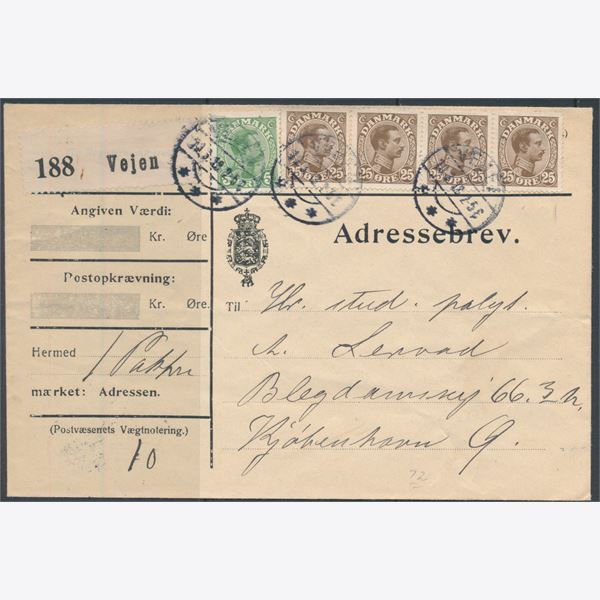 188 Vejen
DANMARK DANMARK DANMARK DANMARK DANMARK
5 ØRE 5 25 ØRE 25 25 ØRE 25 25 ØRE 25 25 ØRE 25
Angiven Værdi:
Kr. Øre
Postopkrævning:
Kr. Øre.
Hermed 1 Pakke
mærket: Adressen.
(Postvæsenets Vægtnotering.)
10
Adressebrev.
Til Hr. stud. polyt.
A. Lervad
Blegdamsvej 66. 3
Kjøbenhavn Ø.
72